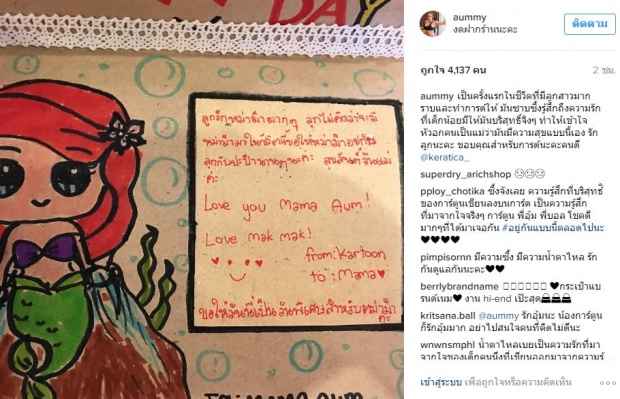 DAY
ลูกรักหม่าม๊ามากๆ
Love you Mama Aum!
Love mak mak!
from: Kartoon
to: Mama
ขอให้วันนี้เป็น วันพิเศษสำหรับหม่าม๊า
ค่ะ
aummy
งดฝากร้านนะคะ
ติดตาม
ถูกใจ 4,137 คน
2 ชม.
aummy เป็นครั้งแรกในชีวิตที่มีลูกสาวมาก
ราบและทำการ์ดให้ มันซาบซึ้งรู้สึกถึงความรัก
ที่เด็กน้อยมีให้มันบริสุทธิ์จริงๆ ทำให้เข้าใจ
หัวอกคนเป็นแม่ว่ามันมีความสุขแบบนี้เอง รัก
ลูกนะคะ ขอบคุณสำหรับการ์ดนะคะคนดี
@keratica_
superdry_arichshop
pploy_chotika ซึ้งจังเลย ความรู้สึกที่บริสุทธิ์
ของการ์ตูนเขียนลงบนการ์ด เป็นความรู้สึก
ที่มาจากใจจริงๆ การ์ตูน พี่อุ้ม พี่บอล โชคดี
มากๆที่ได้มาเจอกัน #อยู่กันแบบนี้ตลอดไปนะ
pimpisornn มีความซึ้ง มีความน้ำตาไหล รัก
กันดูแลกันนะคะ
berrylbrandname กระเป๋าแบ
รนด์เนม งาน hi-end เป๊ะสุด
kritsana.ball @aummy รักอุ้มนะ น้องการ์ตูน
ก็รักอุ้มมาก อย่าไปสนใจคนที่คิดไม่ดีนะ
wnwnsmphl น้ำตาไหลเบยเป็นความรักที่มา
จากใจของเด็กคนนึงที่เขียนออกมาจากความรู้
เข้าสู่ระบบ เพื่อถูกใจหรือความคิดเห็น